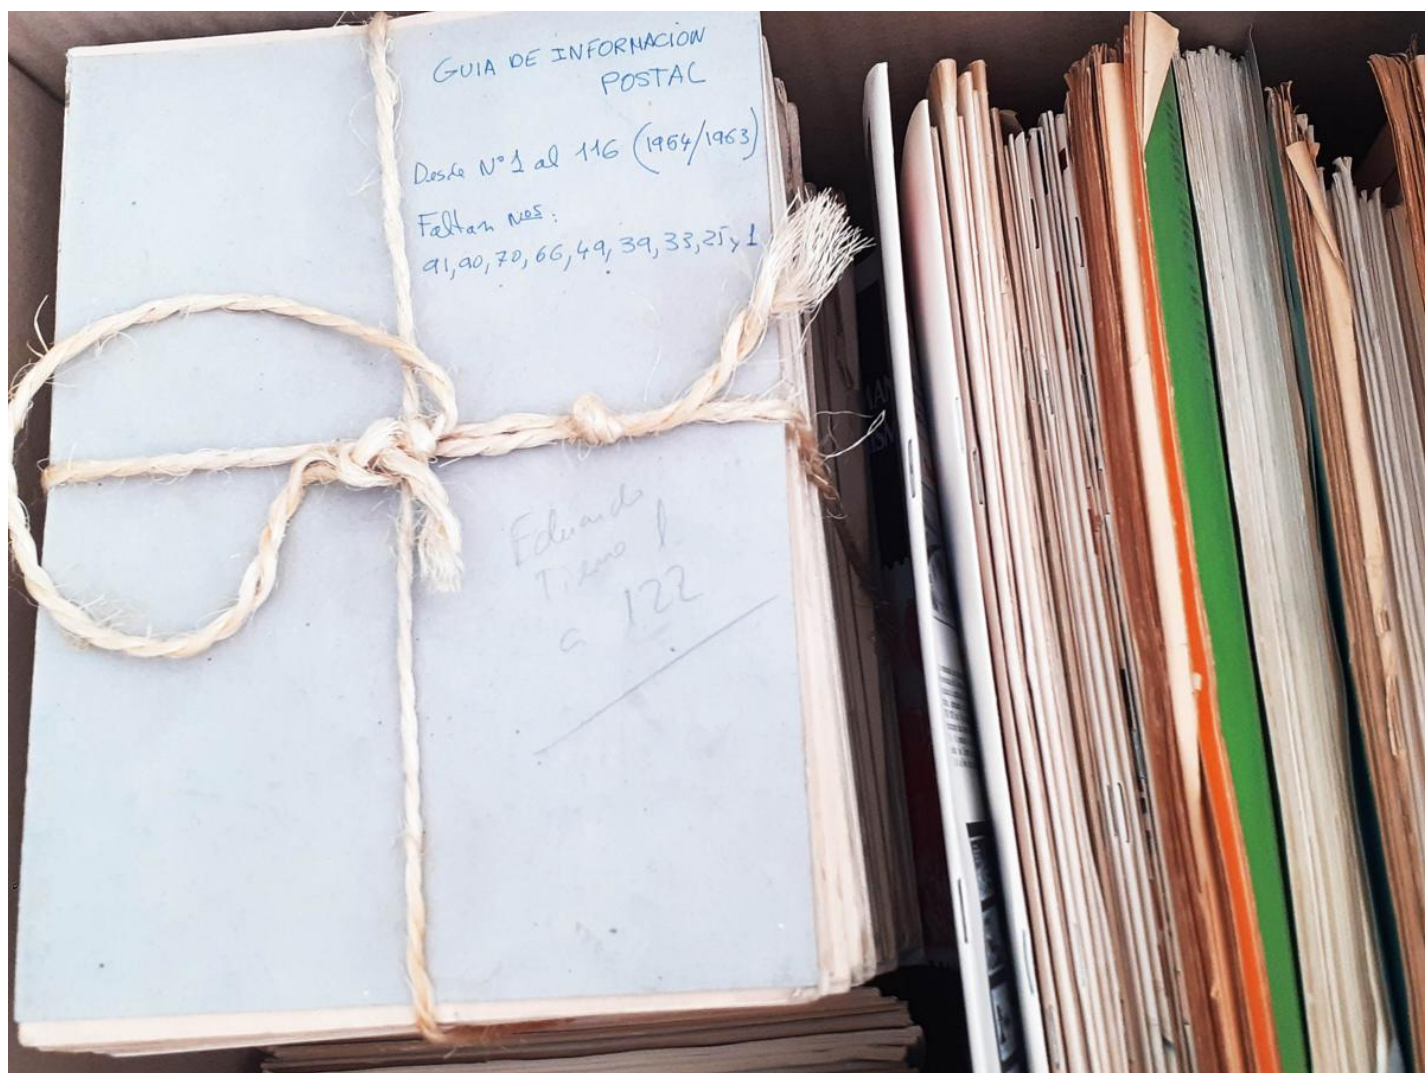 GUIA DE INFORMACION
POSTAL
Desde Nº 1 al 116 (1954/1963)
Faltan Nos:
91, 90, 70, 66, 49, 39, 33, 25 y 1
Eduardo
a 122